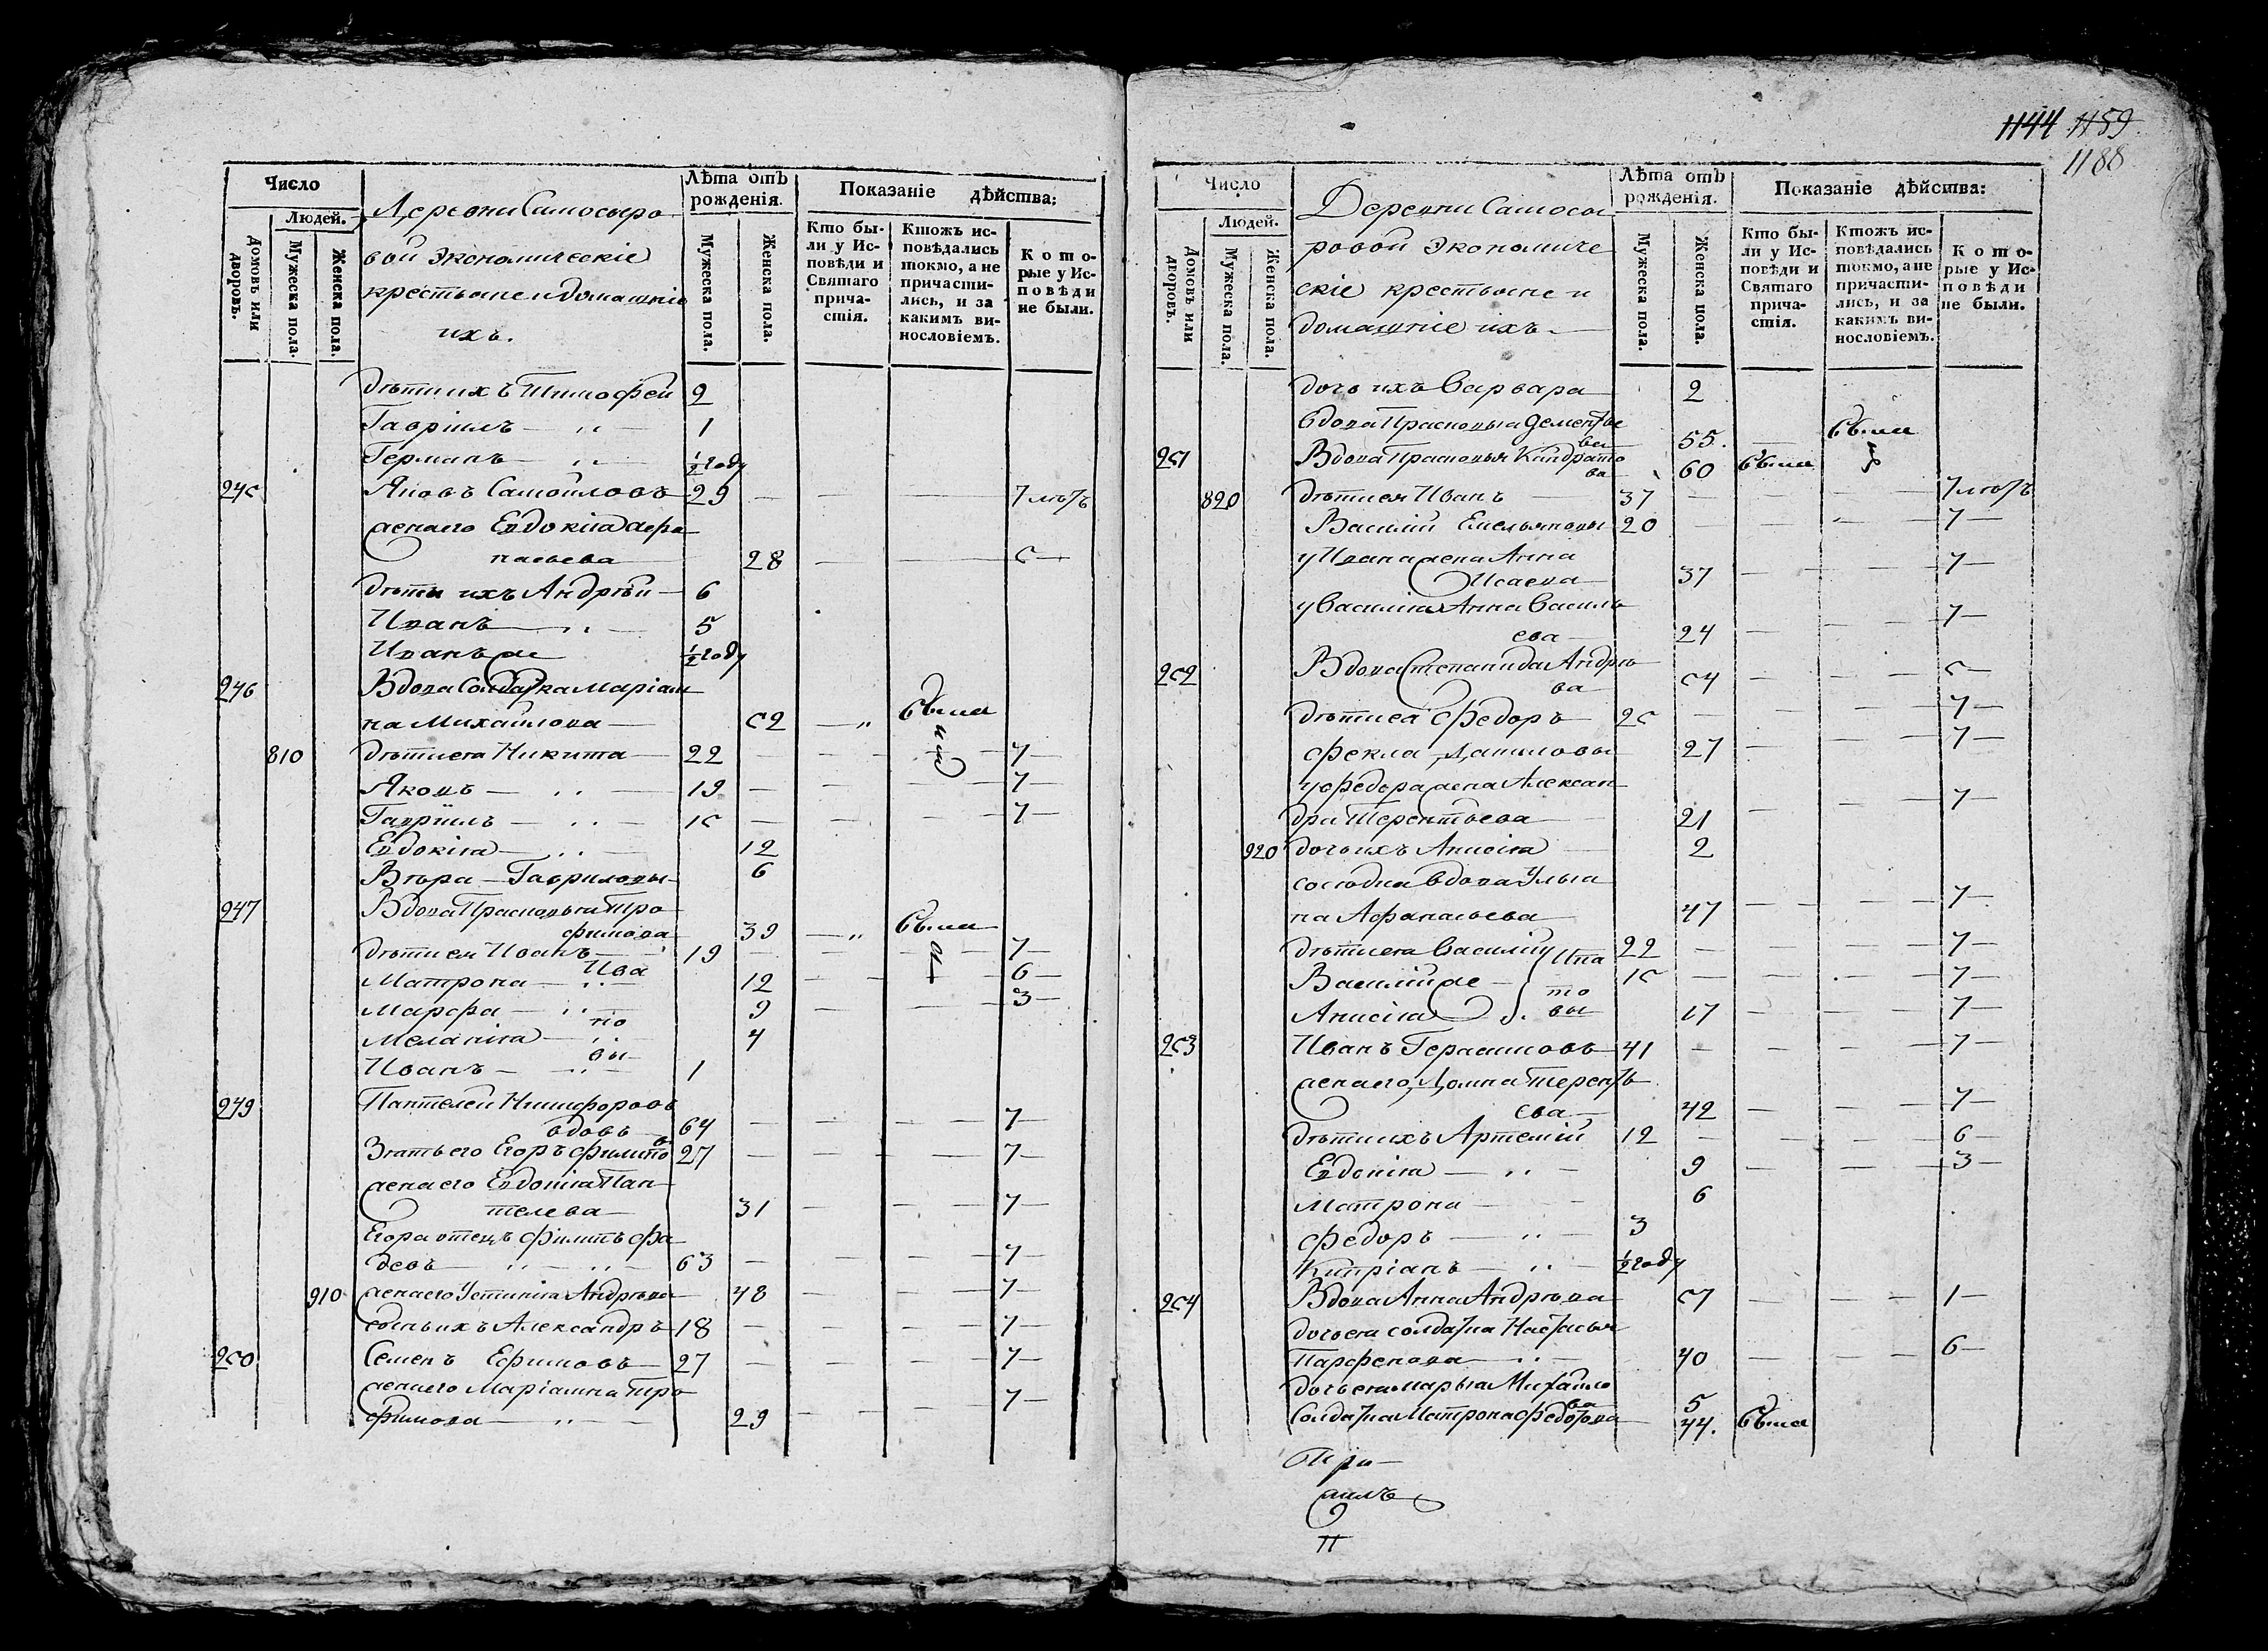 1144 1159
1188
Число
Людей.
Домовъ или дворовъ.
Мужеска пола.
Женска пола.
Деревни Самосыро
вой Экономическіе
крестьяне и домашніе
ихъ.
Лѣта отъ рожденія.
Мужеска пола.
Женска пола.
Показаніе дѣйства:
Кто бы-
ли у Ис-
повѣди и
Святаго
прича-
стія.
Ктожъ ис-
повѣдались
токмо, а не
причасти-
лись, и за
какимъ ви-
нословіемъ.
Кото-
рые у Ис-
повѣди
не были.
дѣти ихъ Тимофей 2
Гавріилъ — ,, — 1
Германъ — ,, — ½ году
245 Яковъ Самойловъ 29 — — — 7 лѣтъ
жена его Евдокіа Афа
насьева 28 — — 5 —
дѣти ихъ Андрѣй — 6
Иванъ — ,, — 5
Иванъ же ½ году
246 Вдова Солдатка Маріам
на Михайлова — 52 — ,, была
810 дѣти ея Никита 22 — — — 7 —
Яковъ — ,, — 19 — — — 7 —
Гавріилъ — ,, — 15 — — — 7 —
Евдокіа — ,, — 12
Вѣра — Гавриловы — 6
247 Вдова Прасковья Тро
фимова 39 — ,, была
дѣти ея Иванъ — 19 — — — 7 —
Матрона — Ива 12 — — — 6 —
Марфа — ,, — 9 — — — 3 —
Меланіа — но 4
Иванъ — вы 1
249 Пантелей Никифоровъ
вдовъ — 64 — — — 7 —
Зять его Егоръ Филипо в 27 — — — 7 —
жена его Евдокіа Пан
телева — 31 — — — 7 —
Егора отецъ Филипъ Фа
деевъ — ,, — ,, — 63 — — — 7 —
910 жена его Устиніа Андрѣева 48 — — — 7 —
сынъ ихъ Александръ 18 — — — 7 —
250 Семенъ Ефимовъ — 27 — — — 7 —
жена его Маріамна Тро
фимова — ,, — 29 — — — 7 —
Число
Людей.
Домовъ или дворовъ.
Мужеска пола.
Женска пола.
Деревни Самосы
ровой Экономиче
скіе крестьяне и
домашніе ихъ —
Лѣта отъ рожденія.
Мужеска пола.
Женска пола.
Показаніе дѣйства:
Кто бы-
ли у Ис-
повѣди и
Святаго
прича-
стія.
Ктожъ ис-
повѣдались
токмо, а не
причасти-
лись, и за
какимъ ви-
нословіемъ.
Кото-
рые у Ис-
повѣди
не были.
дочь ихъ Варвара 2
вдова Прасковья Дементье
ва 55. — была
251 Вдова Прасковья Кандрато
ва 60 была
820 дѣти ея Иванъ — 37 — — — 7 лѣтъ
Василій Емельяновы 20 — — — 7 —
у Ивана жена Анна
Исаева — 37 — — — 7 —
у Василіа Анна Василь
ева — 24 — — — 7 —
252 Вдова Степанида Андрѣе
ва 54 — — — 5 —
дѣти ея Федоръ — 25 — — — 7 —
Фекла Даниловы 27 — — — 7 —
у Федора жена Алексан
дра Терентьева 21 — — — 7 —
920 дочь ихъ Анисіа 2
сосѣдка вдова Улья
на Афанасьева — 47 — — — 7 —
дѣти ея Василій Ипа 22 — — — 7 —
Василій же — то 15 — — — 7 —
Анисіа вы 17 — — — 7 —
253 Иванъ Герасимовъ 41 — — — 7 —
жена его Домна Терентье
ева — 42 — — — 7 —
дѣти ихъ Артемій 12 — — — 6 —
Евдокіа — ,, — 9 — — — 3 —
Матрона — 6
Федоръ — ,, — 3
Кипріанъ — ,, — ½ году
254 Вдова Анна Андрѣева 57 — — — 1 —
дочь ея солдатка Настасья
Парфенова — ,, — 40 — — — 6 —
дочь ея Марья Михайло
ва 5
Солдатка Матрона Федорова 44. была